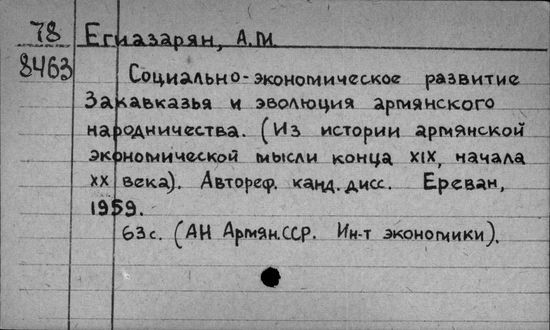 78 Егиазарян, А.М.
8463
Социально-экономическое развитие
Закавказья и эволюция армянского
народничества. (Из истории армянской
экономической мысли конца XIX, начала
XX века). Автореф. канд. дисс. Ереван,
1959.
63 с. (АН Армян.ССР. Ин-т экономики).